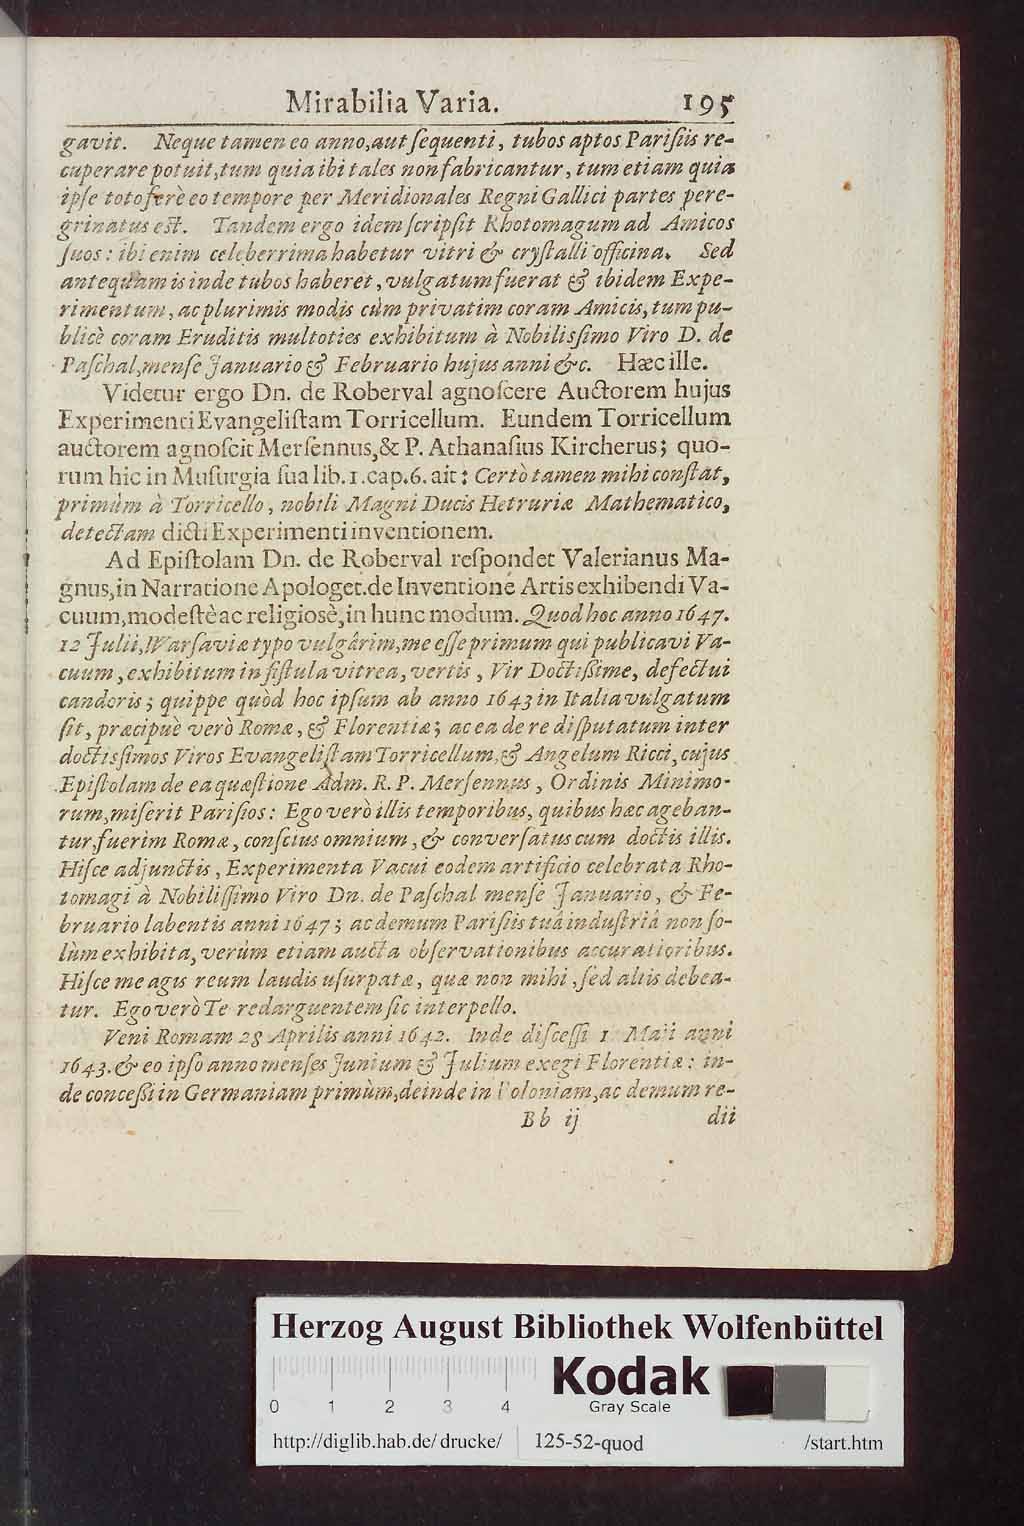 Mirabilia Varia. 195
gavit. Neque tamen eo anno, aut ſequenti, tubos aptos Pariſiis re-
cuperare potuit, tum quia ibi tales non fabricantur, tum etiam quia
ipſe toto ferè eo tempore per Meridionales Regni Gallici partes pere-
grinatus est. Tandem ergo idem ſcripſit Rhotomagum ad Amicos
ſuos: ibi enim celeberrima habetur vitri & cryſtalli officina. Sed
antequam is inde tubos haberet, vulgatum fuerat & ibidem Expe-
rimentum, ac plurimis modis cùm privatim coram Amicis, tum pu-
blicè coram Eruditis multoties exhibitum à Nobiliſſimo Viro D. de
Paſchal, menſe Januario & Februario hujus anni &c. Hæc ille.
Videtur ergo Dn. de Roberval agnoſcere Auctorem hujus
Experimenti Evangeliſtam Torricellum. Eundem Torricellum
auctorem agnoſcit Merſennus, & P. Athanaſius Kircherus; quo-
rum hic in Muſurgia ſua lib. 1. cap. 6. ait: Certò tamen mihi conſtat,
primùm à Torricello, nobili Magni Ducis Hetruriæ Mathematico,
detectam dicti Experimenti inventionem.
Ad Epiſtolam Dn. de Roberval reſpondet Valerianus Ma-
gnus, in Narratione Apologet. de Inventione Artis exhibendi Va-
cuum, modeſtè ac religiosè, in hunc modum. Quod hoc anno 1647.
12 Julii, Warſaviæ typo vulgârim, me eſſe primum qui publicavi Va-
cuum, exhibitum in fiſtula vitrea, vertis, Vir Doctißime, defectui
candoris; quippe quòd hoc ipſum ab anno 1643 in Italia vulgatum
ſit, præcipuè verò Romæ, & Florentiæ; ac ea de re diſputatum inter
doctissimos Viros Evangeliſtam Torricellum, & Angelum Ricci, cujus
Epiſtolam de ea quæſtione Adm. R. P. Merſennus, Ordinis Minimo-
rum, miſerit Pariſios: Ego verò illis temporibus, quibus hæcageban-
tur, fuerim Romæ, conſcius omnium, & converſatus cum doctis illis.
Hiſce adjunctis, Experimenta Vacui eodem artificio celebrata Rho-
tomagi à Nobiliſſimo Viro Dn. de Paſchal menſe Januario, & Fe-
bruario labentis anni 1647; ac demum Pariſiis tuâ induſtriâ non ſo-
lùm exhibita, verùm etiam aucta obſervationibus accuratioribus.
Hiſce me agis reum laudis uſurpatæ, quæ non mihi, ſed aliis debea-
tur. Ego verò Te redarguentem ſic interpello.
Veni Romam 28 Aprilis anni 1642. Inde diſceſſi 1 Maji anni
1643. & eo ipſo anno menſes Junium & Julium exegi Florentiæ: in-
de conceßi in Germaniam primùm, deinde in Poloniam, ac demum re-
Bb ij dii
Herzog August Bibliothek Wolfenbüttel
Kodak
Gray Scale
0 1 2 3 4
http://diglib.hab.de/drucke/ 125-52-quod /start.htm